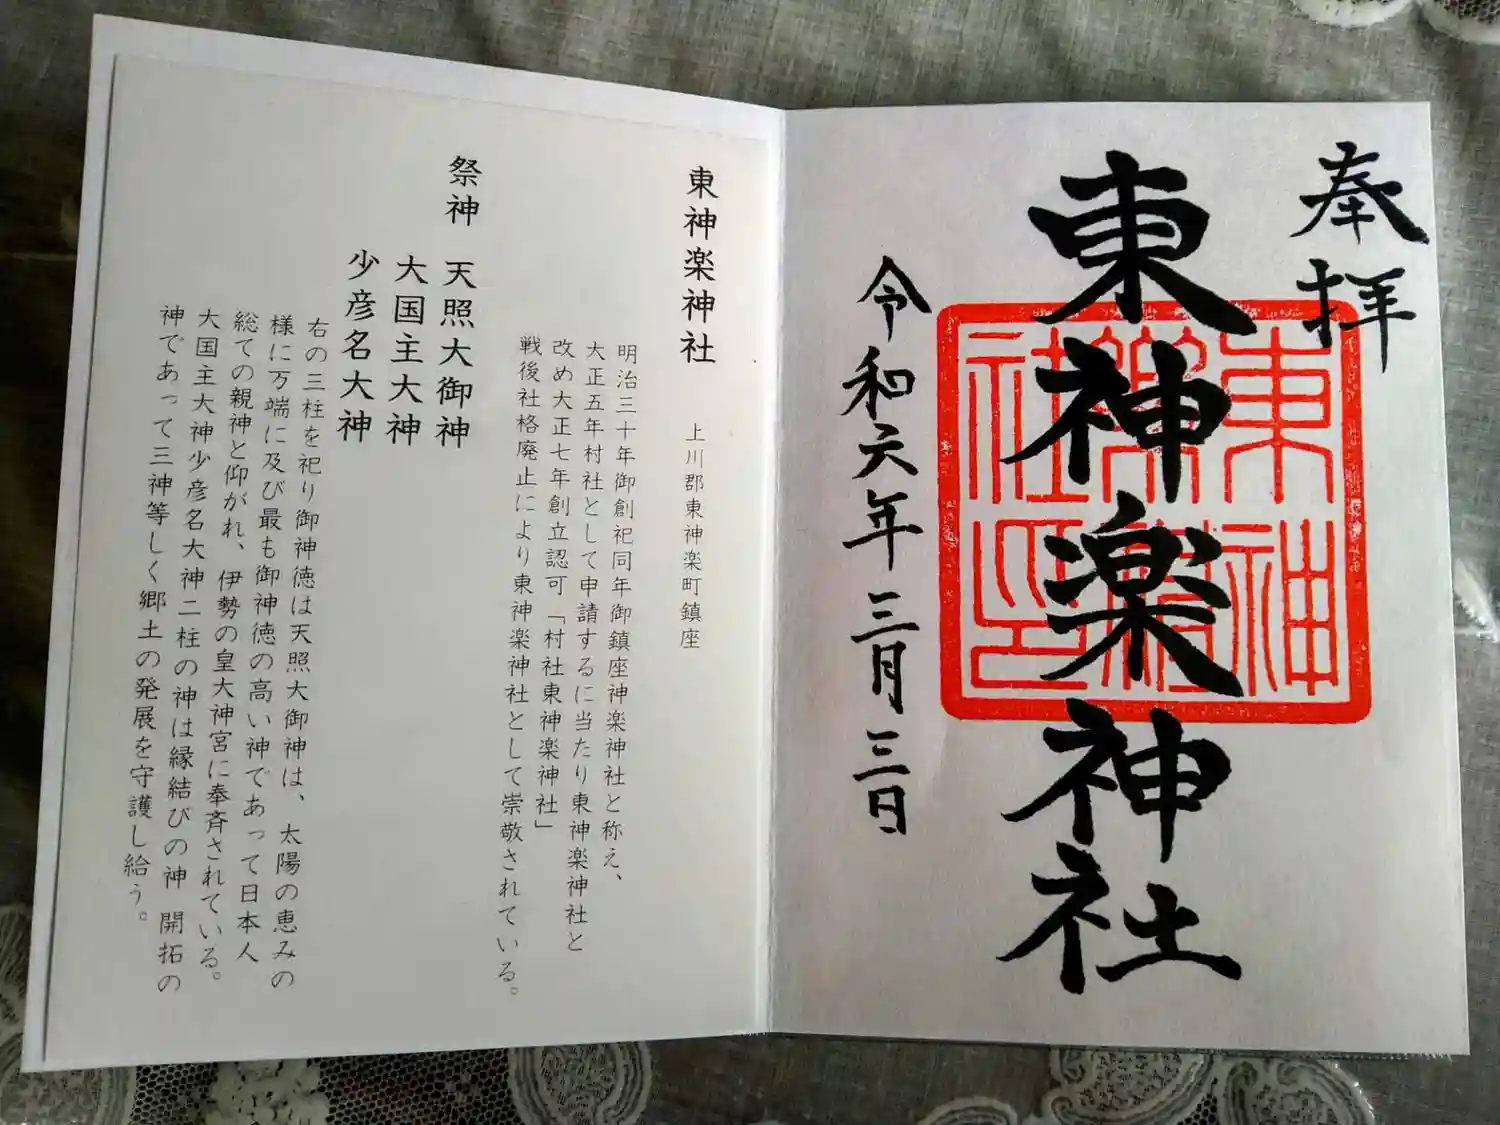 奉拝
東神楽神社
東神楽社印
令和六年三月三日
東神楽神社
上川郡東神楽町鎮座
明治三十年御創祀同年御鎮座神楽神社と称え、
大正五年村社として申請するに当たり東神楽神社と
改め大正七年創立認可「村社東神楽神社」
戦後社格廃止により東神楽神社として崇敬されている。
祭神 天照大御神
大国主大神
少彦名大神
右の三柱を祀り御神徳は天照大御神は、太陽の恵みの
様に万端に及び最も御神徳の高い神であって日本人
総ての親神と仰がれ、伊勢の皇大神宮に奉斉されている。
大国主大神少彦名大神二柱の神は縁結びの神 開拓の
神であって三神等しく郷土の発展を守護し給う。